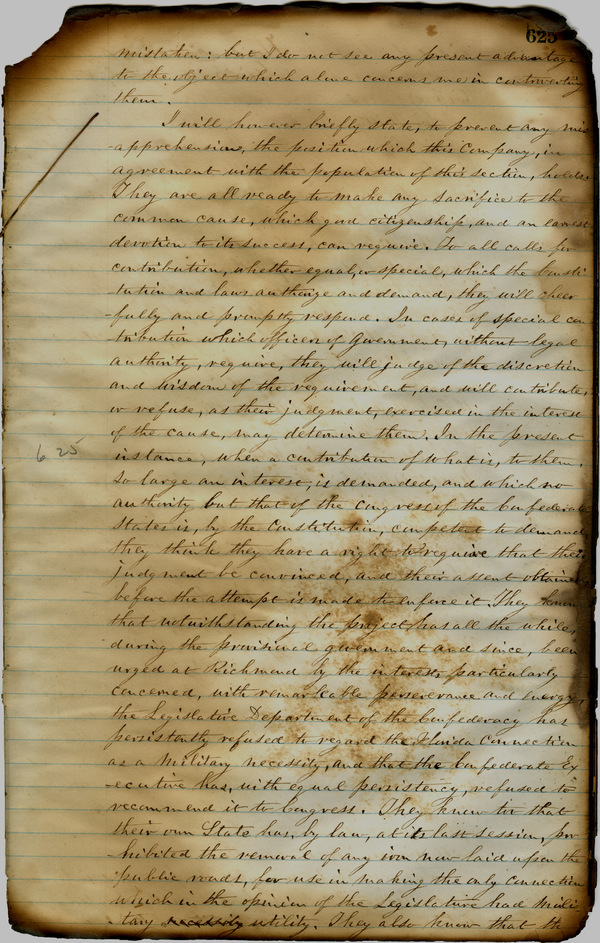 625
mistaken: but I do not see any present advantage
to the object which alone concerns me in controverting
them.
I will however briefly state, to prevent any mis
-apprehension, the position which this Company, in
agreement with the population of this section, holds.
They are all ready to make any sacrifice to the
common cause, which good citizenship, and an earnest
devotion to its success, can require. To all calls for
contribution, whether equal, or special, which the Consti
-tution and laws authorize and demand, they will cheer
-fully and promptly respond. In cases of special con
-tribution which officers of Government, without legal
authority, require, they will judge of the discretion
and wisdom of the requirement, and will contribute,
or refuse, as their judgment, exercised in the interest
of the cause, may determine them. In the present
instance, when a contribution of what is, to them,
so large an interest, is demanded, and which no
authority but that of the Congress of the Confederate
States is, by the Constitution, competent to demand
they think they have a right to require that their
judgment be convinced, and their assent obtained
before the attempt is made to enforce it. They know
that notwithstanding the project has all the while,
during the provisional government and since, been
urged at Richmond by the interests particularly
concerned, with remarkable perseverance and energy,
the Legislative Department of the Confederacy has
persistently refused to regard the Florida Connection
as a Military necessity, and that the Confederate Ex
-ecutive has, with equal persistency, refused to
recommend it to Congress. They know too that
their own State has, by law, at its last session, pro
-hibited the removal of any iron now laid upon the
public roads, for use in making the only Connection
which in the opinion of the Legislature had Mili-
-tary necessity utility. They also know that the
625